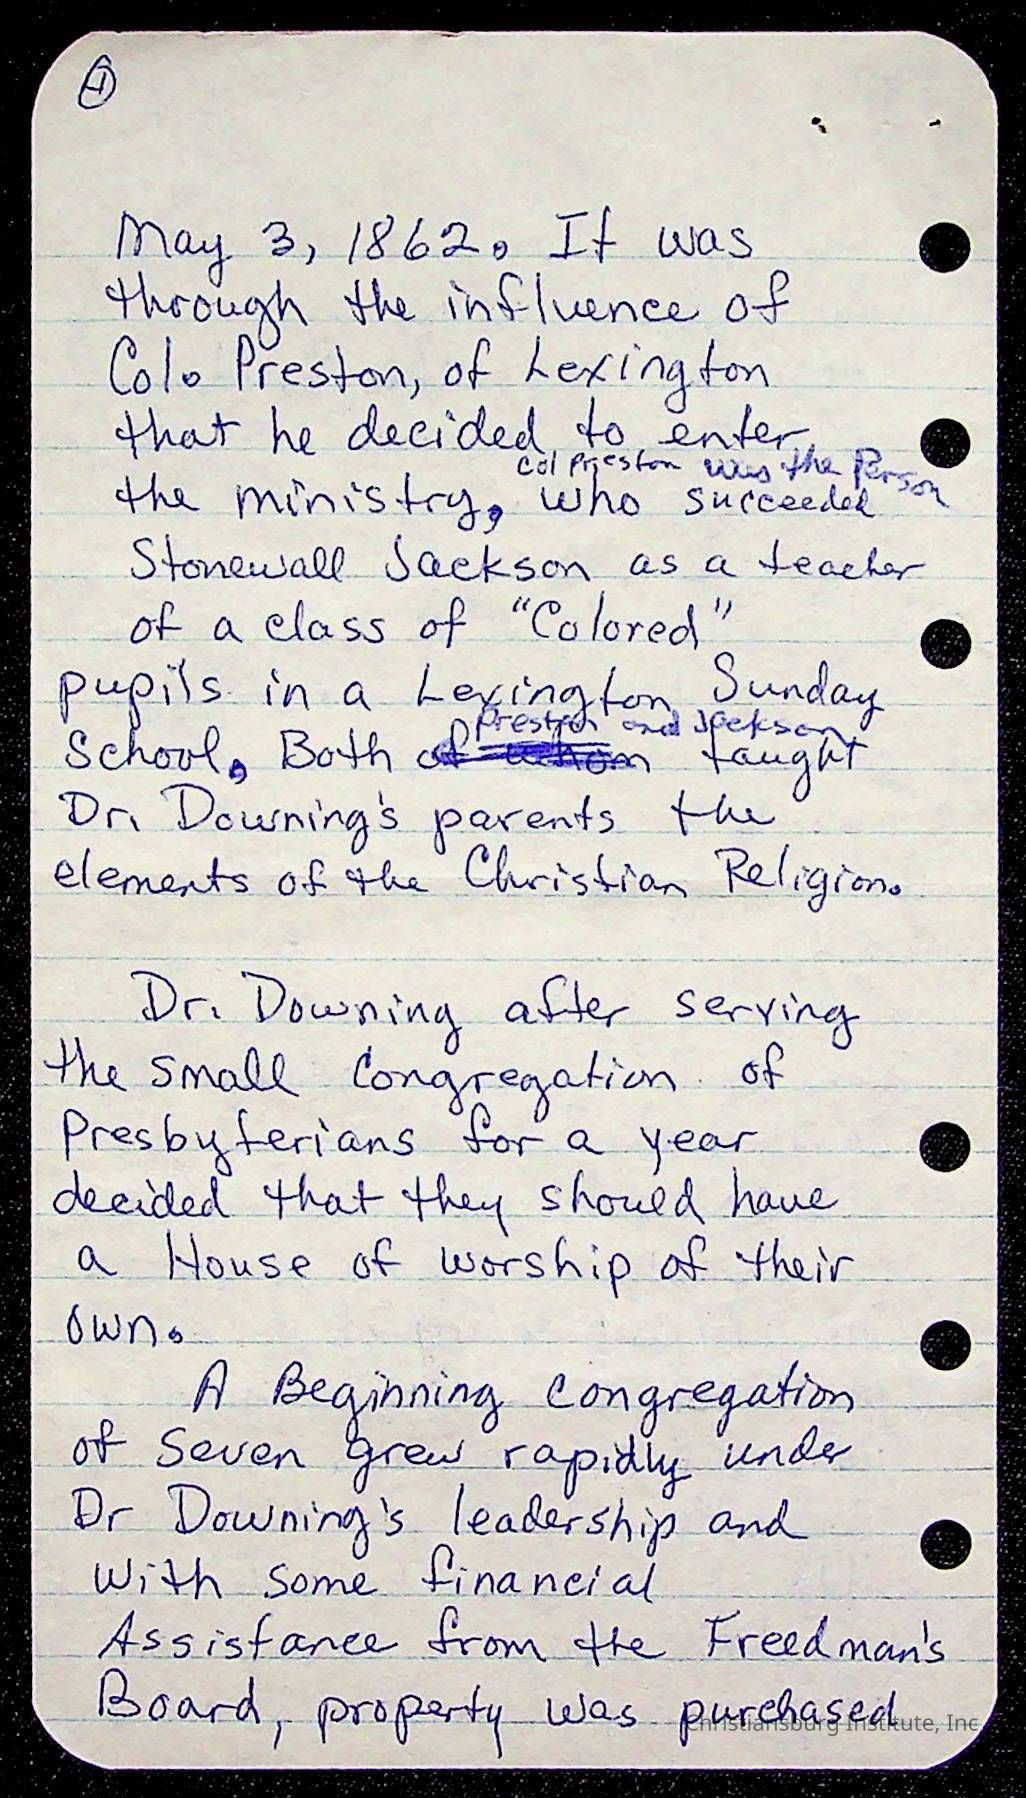 4
May 3, 1862. It was
through the influence of
Col. Preston, of Lexington
that he decided to enter
Col Preston was the Person
the ministry, who succeeded
Stonewall Jackson as a teacher
of a class of "Colored"
pupils in a Lexington Sunday
Preston and Jackson
School. Both of whom taught
Dr. Downing's parents the
elements of the Christian Religion.
Dr. Downing after serving
the small congregation of
Presbyterians for a year
decided that they should have
a House of worship of their
own.
A Beginning congregation
of seven grew rapidly under
Dr Downing's leadership and
with some financial
Assistance from the Freedman's
Board, property was purchased
Christiansburg Institute, Inc.